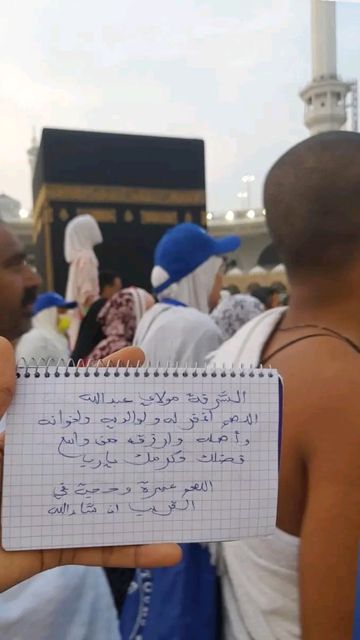 الشرفة مولاي عبدالله
اللهم اغفر له ولوالديه ولإخوانه
وأهله وارزقه من واسع
فضلك وكرمك يارب
اللهم عمرة وحجة في
القريب ان شاء الله